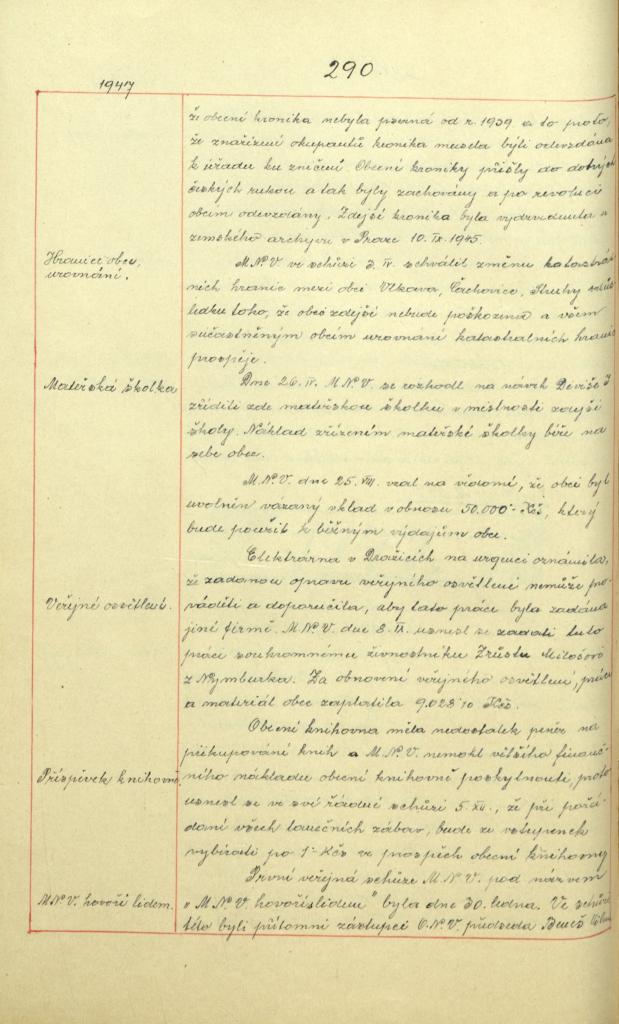 290.
1947
že obecní kronika nebyla psaná od r. 1939 a to proto,
že znařízení okupantů kronika musela býti odevzdána
k úřadu ku zničení. Obecní kroniky přišly do dobrých
českých rukou a tak byly zachovány a po revoluci
obcím odevzdány. Zdejší kronika byla vyzvednuta z
zemského archyvu v Praze 10. IX. 1945.
Hranice obce,
urovnání.
M.N.V. ve schůzi 3. IV. schválil změnu katastrál-
ních hranic mezi obcí Vlkava, Čachovice, Struhy
toho, že obec zdejší nebude poškozena a všem
súčastněným obcím urovnání katastrálních hranic
prospěje.
Mateřská školka
Dne 26. IV. M.N.V. se rozhodl na návrh
zříditi zde mateřskou školku v místnosti zdejší
školy. Náklad zřízením mateřské školky béře na
sebe obec.
M.N.V. dne 25. VIII. vzal na vědomí, že obci byl
uvolněn vázaný vklad v obnosu 50.000·- Kčs, který
bude použit k běžným výdajům obce.
Elektrárna v Dražicích na urgenci oznámila,
že žádanou opravu veřejného osvětlení nemůže pro-
Veřejné osvětlení.
váděti a doporučila, aby tato práce byla zadána
jiné firmě. M.N.V. dne 8. IX. usnesl se zadati tuto
práci soukromnému živnostníku Zrůstu Milošovi
z Nymburka. Za obnovení veřejného osvětlení, práci
a materiál obec zaplatila 9.028·10 Kčs.
Obecní knihovna měla nedostatek peněz na
přikupování knih a M.N.V. nemohl většího finanč-
Příspěvek knihovně
ního nákladu obecní knihovně poskytnouti, proto
usnesl se ve své řádné schůzi 5. XII., že při pořá-
dání všech tanečních zábav, bude ze vstupenek
vybírati po 1·- Kčs ve prospěch obecní knihovny
První veřejná schůze M.N.V. pod názvem
M.N.V. hovoří lidem.
„M.N.V. hovoříslidem" byla dne 30. ledna. Ve schůzi
této byli přítomni zástupci O.N.V. předseda Beneš